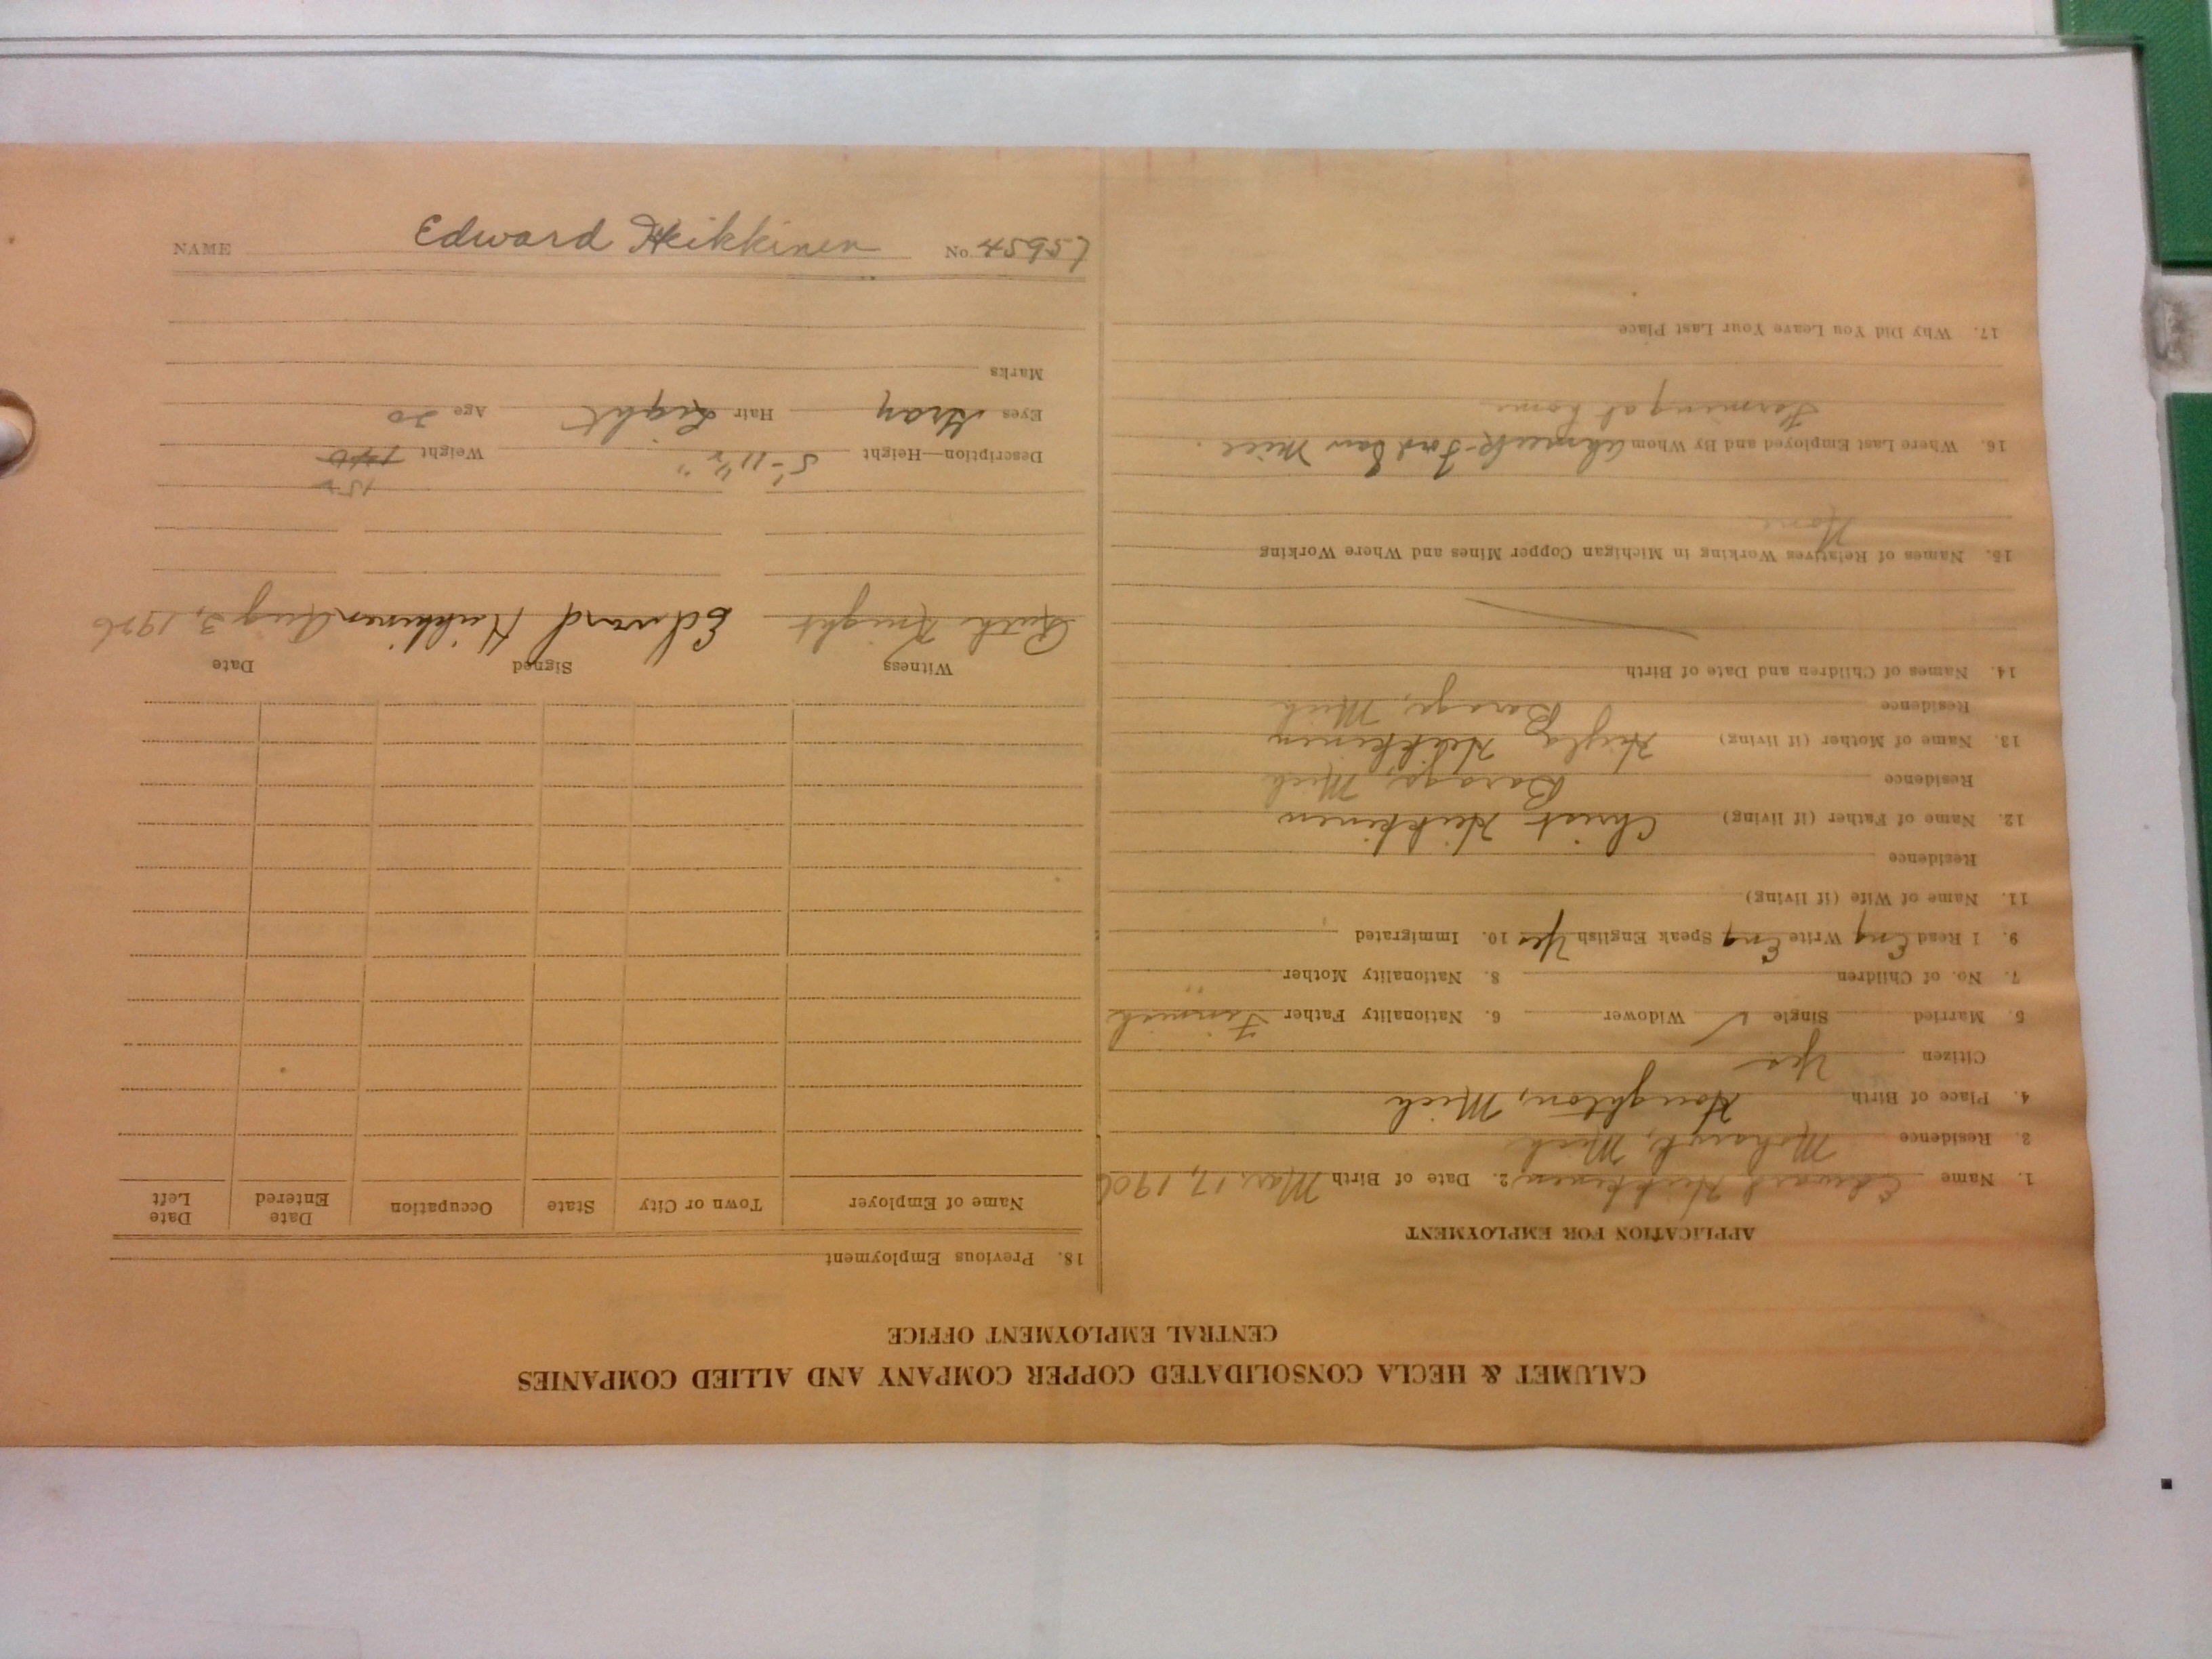 CALUMET & HECLA CONSOLIDATED COPPER COMPANY AND ALLIED COMPANIES
CENTRAL EMPLOYMENT OFFICE
APPLICATION FOR EMPLOYMENT
1. Name Edward Heikkinen 2. Date of Birth Mar. 17, 1906
3. Residence Mohawk, Mich
4. Place of Birth Houghton, Mich
Citizen Yes
5. Married Single ✓ Widower 6. Nationality Father Finnish
7. No. of Children 8. Nationality Mother "
9. I Read Eng Write Eng Speak English Yes 10. Immigrated
11. Name of Wife (if living)
Residence
12. Name of Father (if living) Christ Heikkinen
Residence Baraga, Mich
13. Name of Mother (if living) Heikkinen
Residence Baraga, Mich
14. Names of Children and Date of Birth
15. Names of Relatives Working in Michigan Copper Mines and Where Working
None
16. Where Last Employed and By Whom Ahmeek - Ford Saw Mill.
Farming at home
17. Why Did You Leave Your Last Place
18. Previous Employment
Name of Employer Town or City State Occupation Date Entered Date Left
Witness Signed Date
Ruth Knight Edward Heikkinen Aug 3, 1926
Description—Height 5'-11½" Weight 140
Eyes Gray Hair Light Age 20
Marks
NAME Edward Heikkinen No.